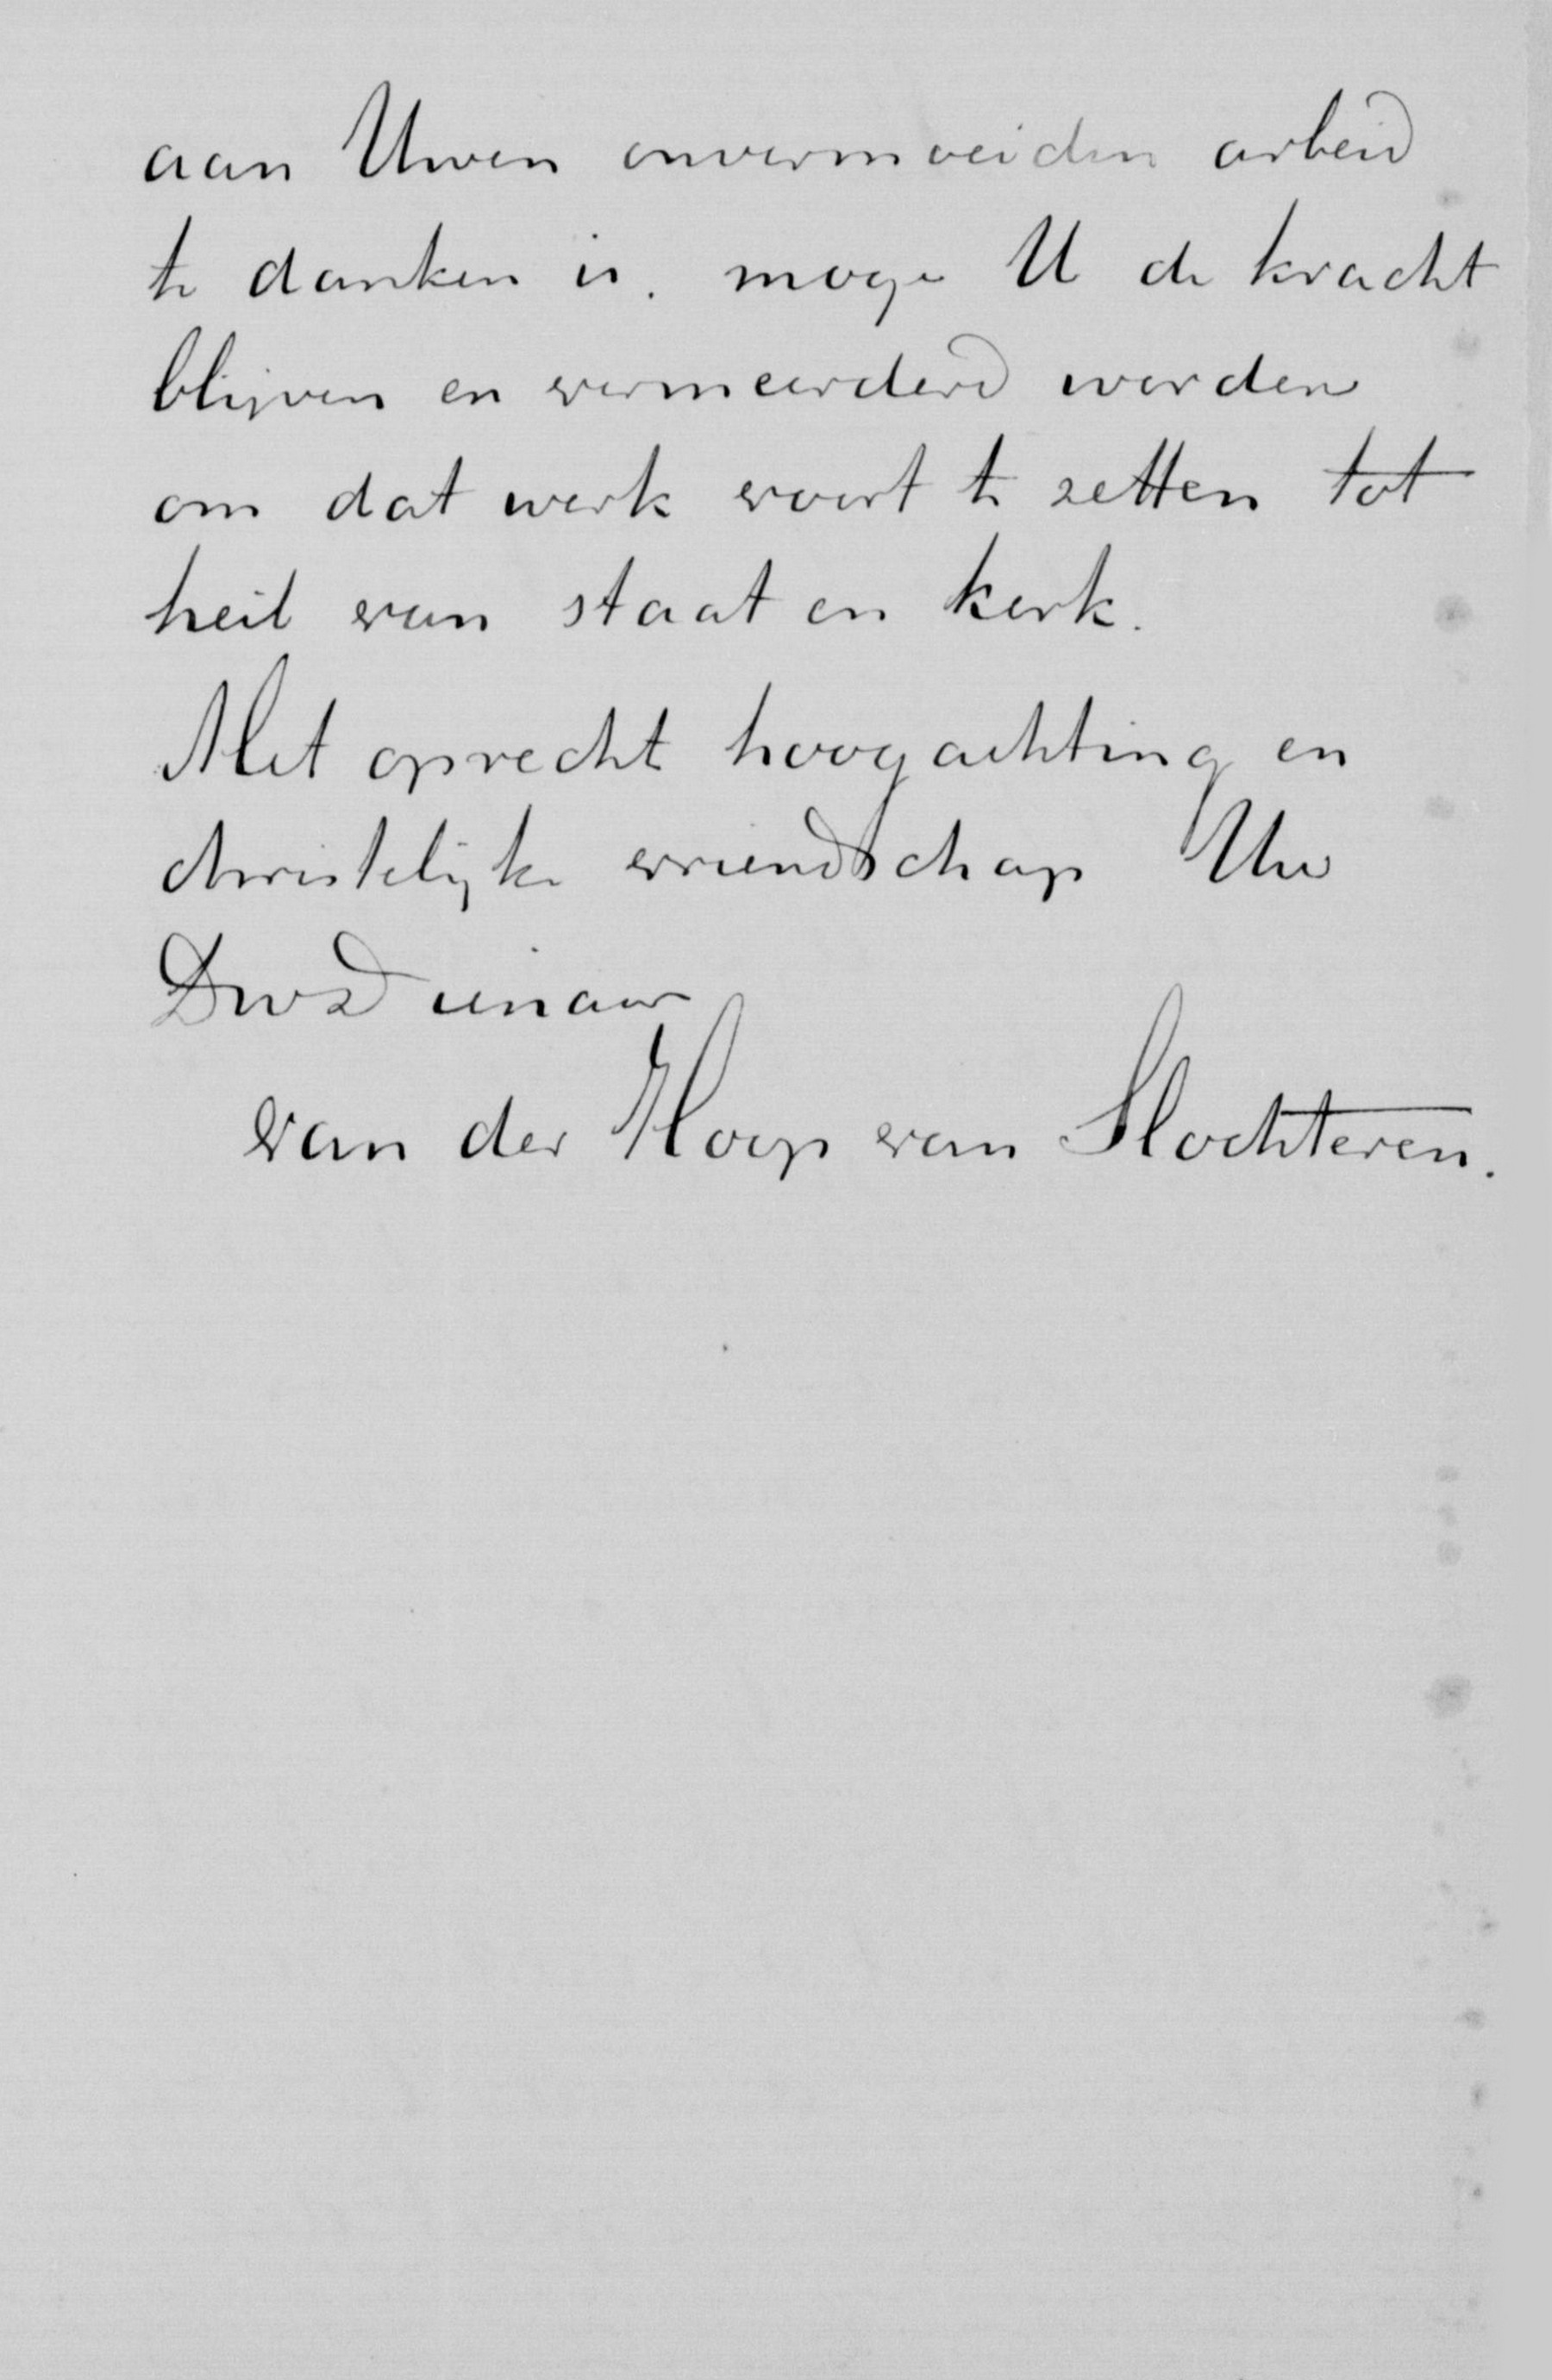 aan Uwen onvermoeiden arbeid
te danken is. moge U de kracht
blijven en vermeerderd worden
om dat werk voort te zetten tot
heil van staat en kerk.
Met oprecht hoogachting en
christelijke vriendschap Uw
Dwd dienaar
van der Hoop van Slochteren.